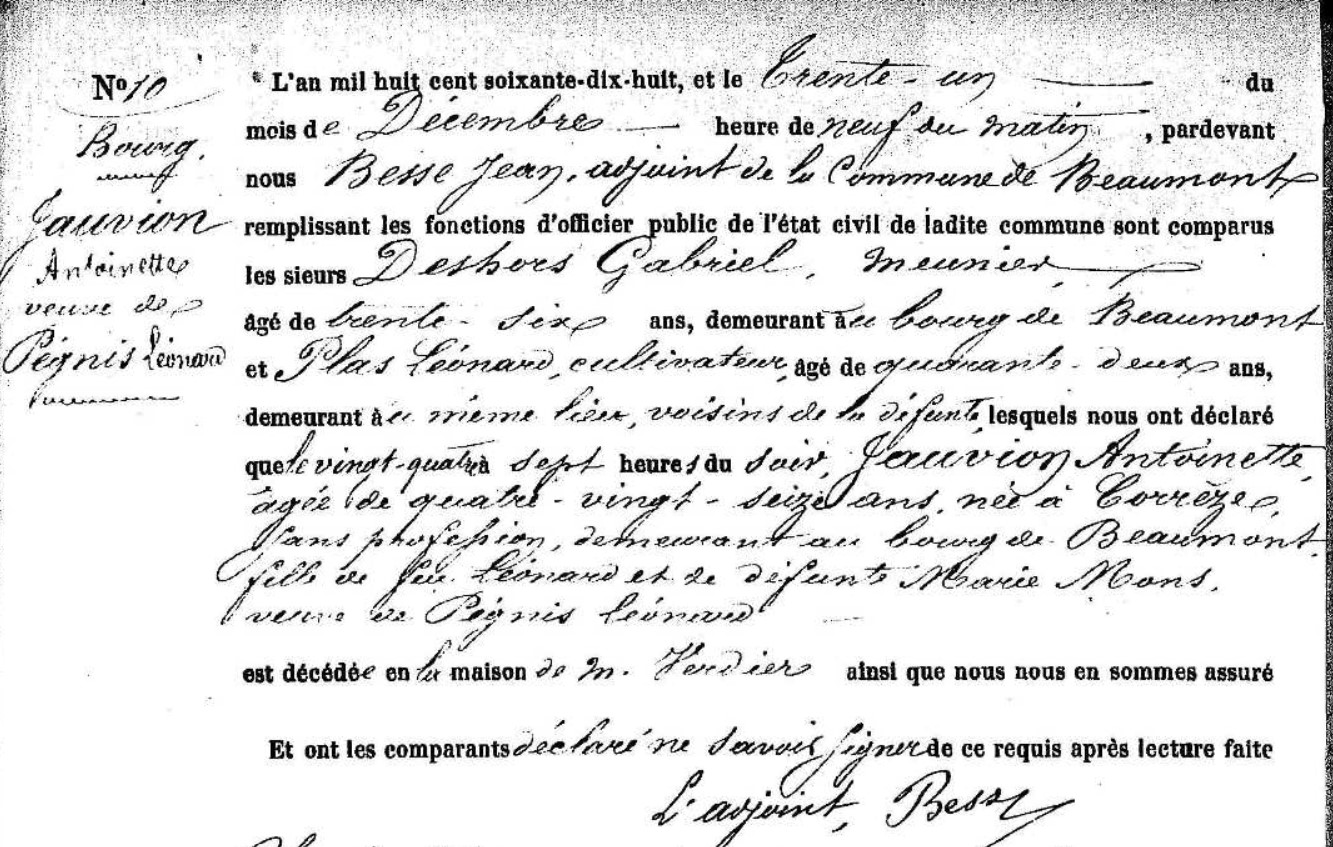 No 10
Bourg.
Jauvion
Antoinette
veuve de
Pégnis Léonard
L'an mil huit cent soixante-dix-huit, et le Trente-un du
mois de Décembre heure de neuf du matin, pardevant
nous Besse Jean, adjoint de la Commune de Beaumont
remplissant les fonctions d'officier public de l'état civil de ladite commune sont comparus
les sieurs Deshors Gabriel, meunier
âgé de trente-six ans, demeurant au bourg de Beaumont
et Plas Léonard, cultivateur, âgé de quarante-deux ans,
demeurant au même lieu, voisins de la défunte, lesquels nous ont déclaré
que le vingt-quatre à sept heures du soir, Jauvion Antoinette,
agée de quatre-vingt-seize ans, née à Corrèze,
sans profession, demeurant au bourg de Beaumont,
fille de feu Léonard et de défunte Marie Mons,
veuve de Pégnis Léonard
est décédée en la maison de M. Verdier ainsi que nous nous en sommes assuré
Et ont les comparants déclaré ne savoir signer de ce requis après lecture faite
L'adjoint, Besse